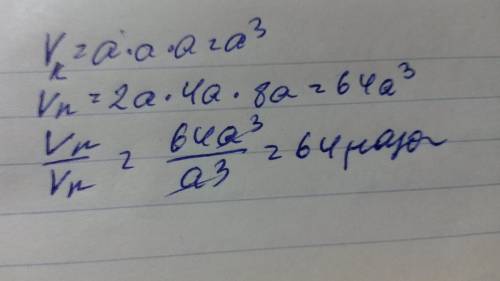 Vк = a·a·a = a³
Vп = 2a·4a·8a = 64a³
Vп/Vк = 64a³/a3 = 64 раза